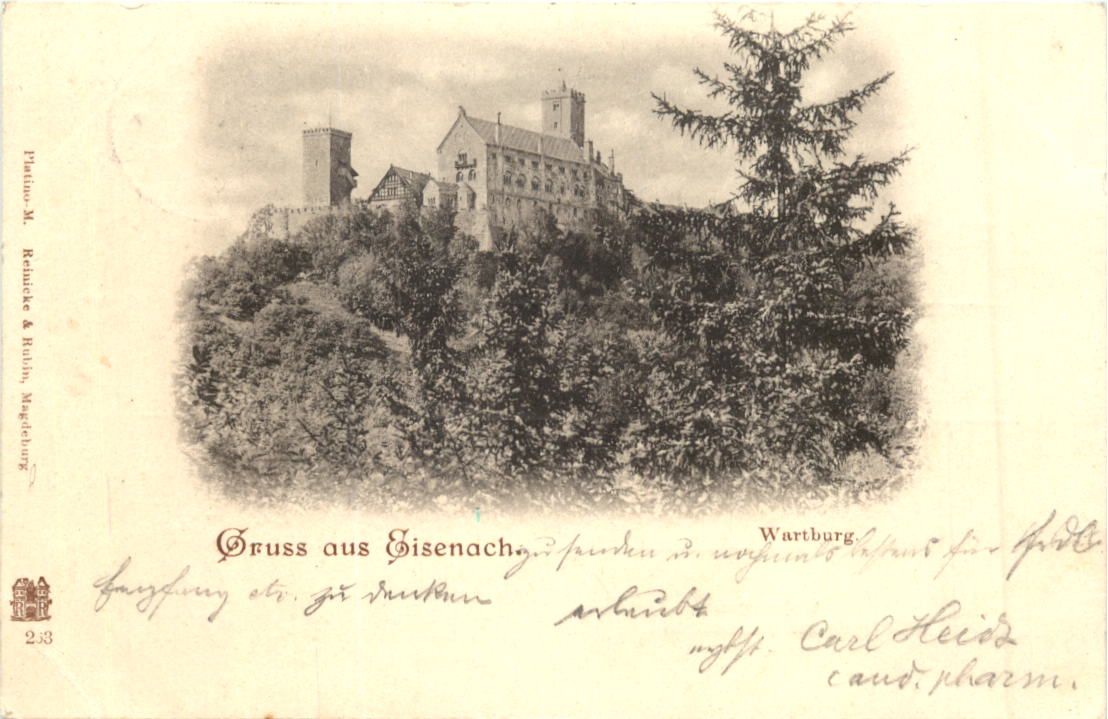 Platino-M. Reinicke & Rubin, Magdeburg
Gruss aus Eisenach.
Wartburg.
zu senden u. nochmals bestens für frdl.
Empfang etc. zu danken
erlaubt
Carl Heidt
cand. pharm.
R R
263